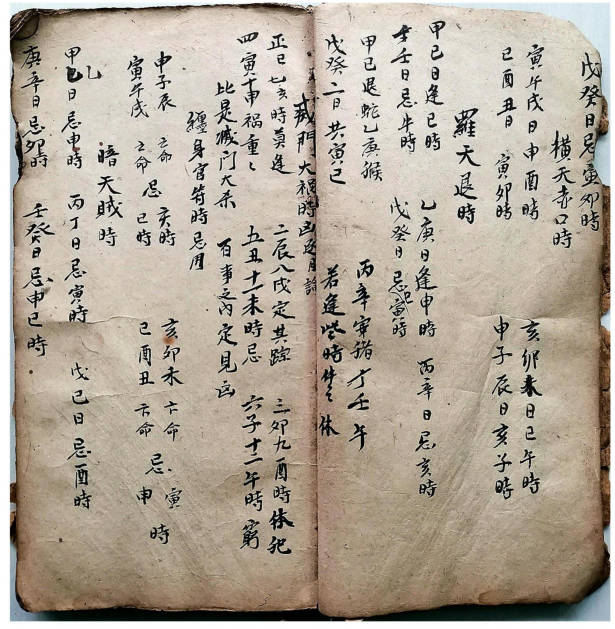 戊癸日忌寅卯時
橫天赤口時
寅午戌日申酉時 亥卯未日巳午時
巳酉丑日 寅卯時 申子辰日亥子時
羅天退時
甲己日逢巳時 乙庚日逢申時 丙辛日忌亥時
壬日忌午時 戊癸日忌寅時
甲己退蛇乙庚猴 丙辛寅猪丁壬午
戊癸二日共寅巳 若逢些時休
滅門大禍時凶逐月論
正巳七亥時莫逢 二辰八戌定其踪 三卯九酉時休犯
四寅十申祸重々 五丑十一未時忌 六子十二午時窮
比是滅门大杀 百事之內定見凶
纏身官符時忌用
申子辰 亡命 亥時 亥卯未 亡命 寅
寅午戌 亡命 忌 巳時 巳酉丑 亡命 忌 申 時
暗天賊時
甲乙日忌申時 丙丁日忌寅時 戊己日忌酉時
庚辛日忌卯時 壬癸日忌申巳時